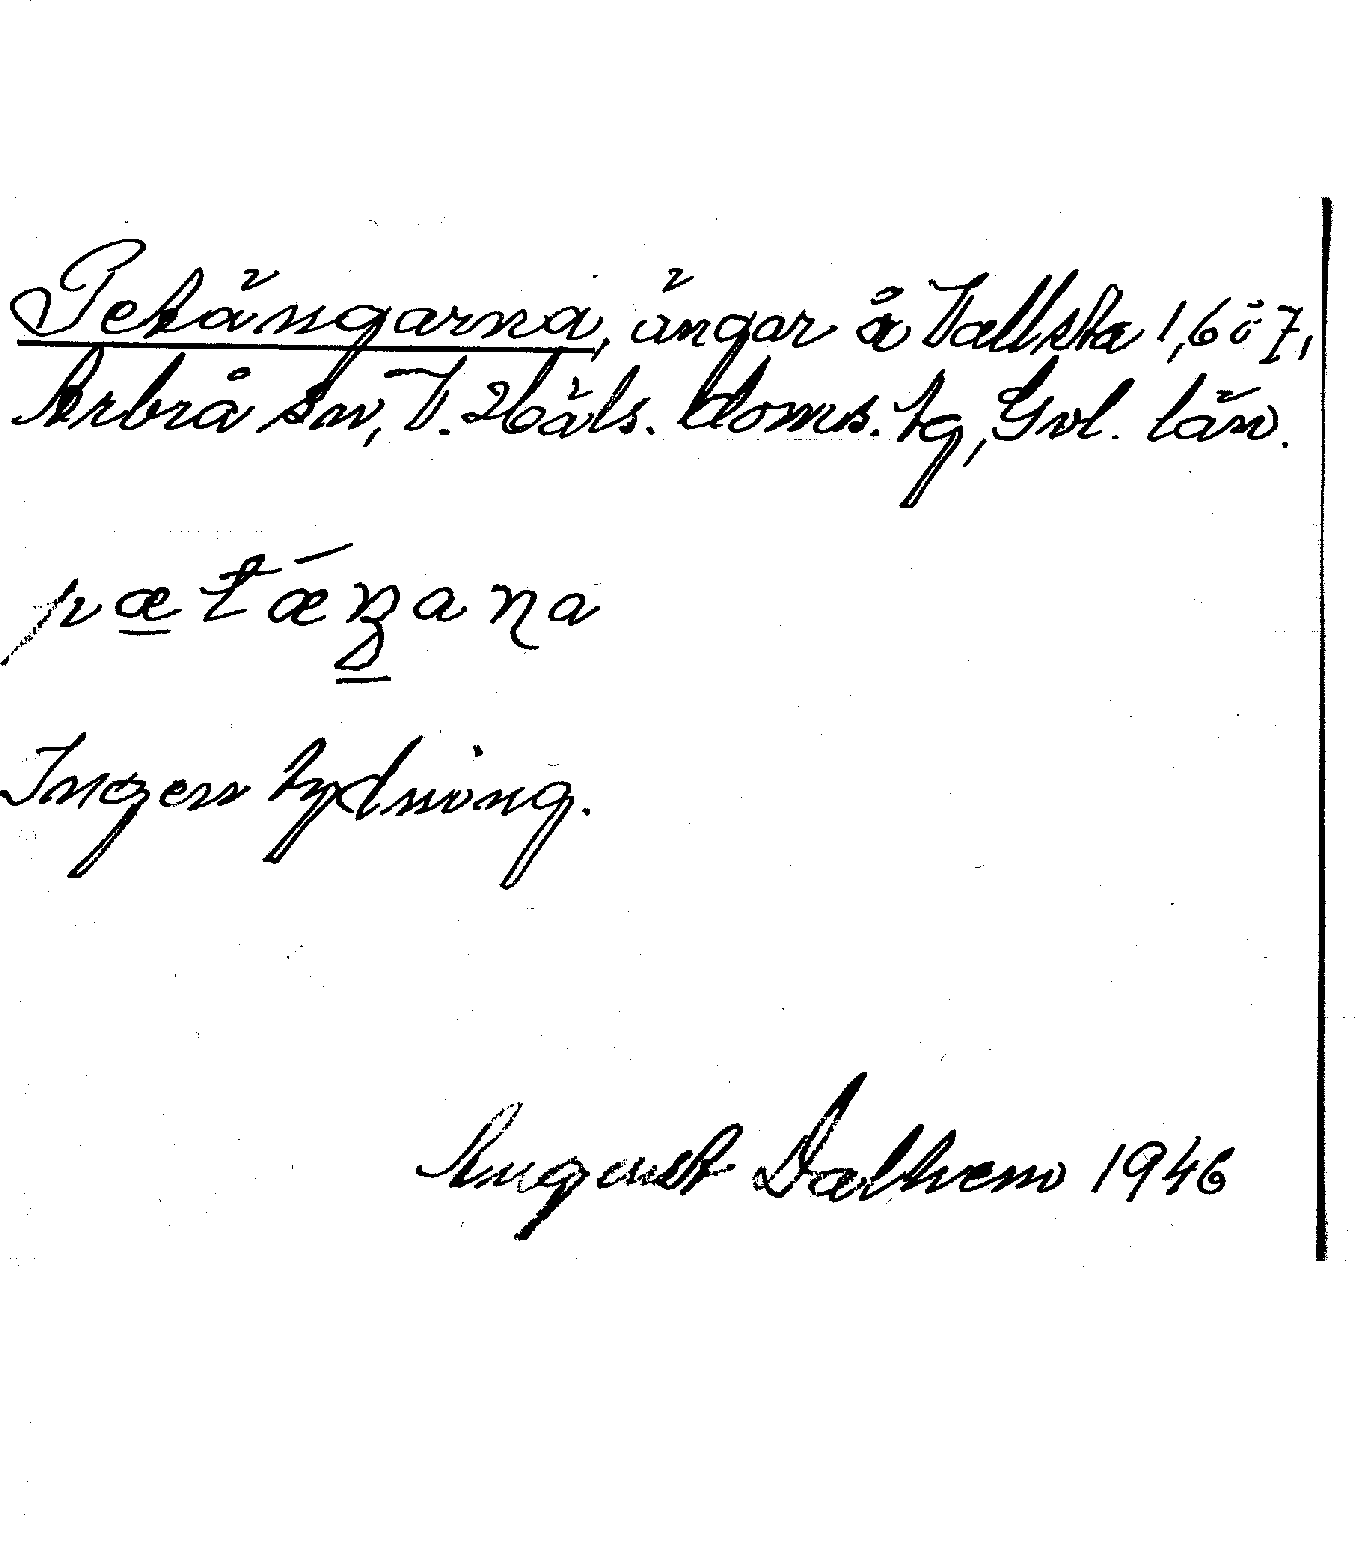 Petängarna, ängar å Vallsta 1, 6 ö 7,
Arbrå sn, V. Häls. doms. tg, Gvl. län.
pætǽŋaɳa
Ingen tydning.
August Dalhem 1946